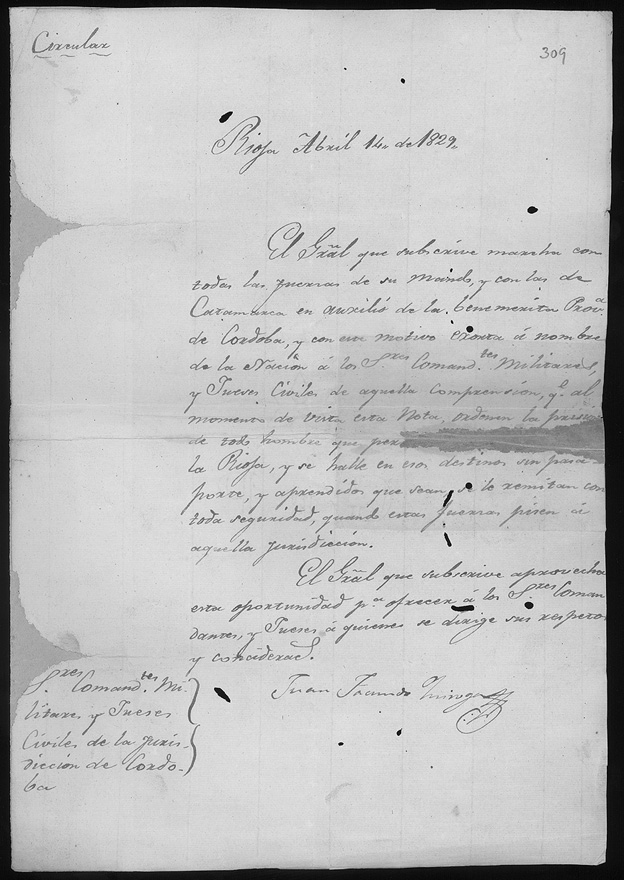 Circular
309
Rioja Abril 14 de 1829.
El Gral que subscrive marcha con
todas las fuerzas de su mando, y con las de
Catamarca en auxilio de la benemerita Prova
de Cordoba, y con este motivo exorta á nombre
de la Nación á los Sres Comandtes Militares,
y Jueses Civiles de aquella comprension, qe al
momento de vista esta Nota, ordenen la prision
de todo hombre que per
la Rioja, y se halle en esos destinos sin pasa-
porte, y aprendidos que sean, se le remitan con
toda seguridad, quando estas fuerzas pisen á
aquella jurisdiccion.
El Gral que subscrive aprovecha
esta oportunidad pa ofrecer á los Sres Coman
dantes, y Jueses á quienes se dirige sus respetos
y considerac
Juan Facundo Quiroga
Sres Comandtes Mi-
litares y Jueses
Civiles de la Juris-
diccion de Cordo-
ba